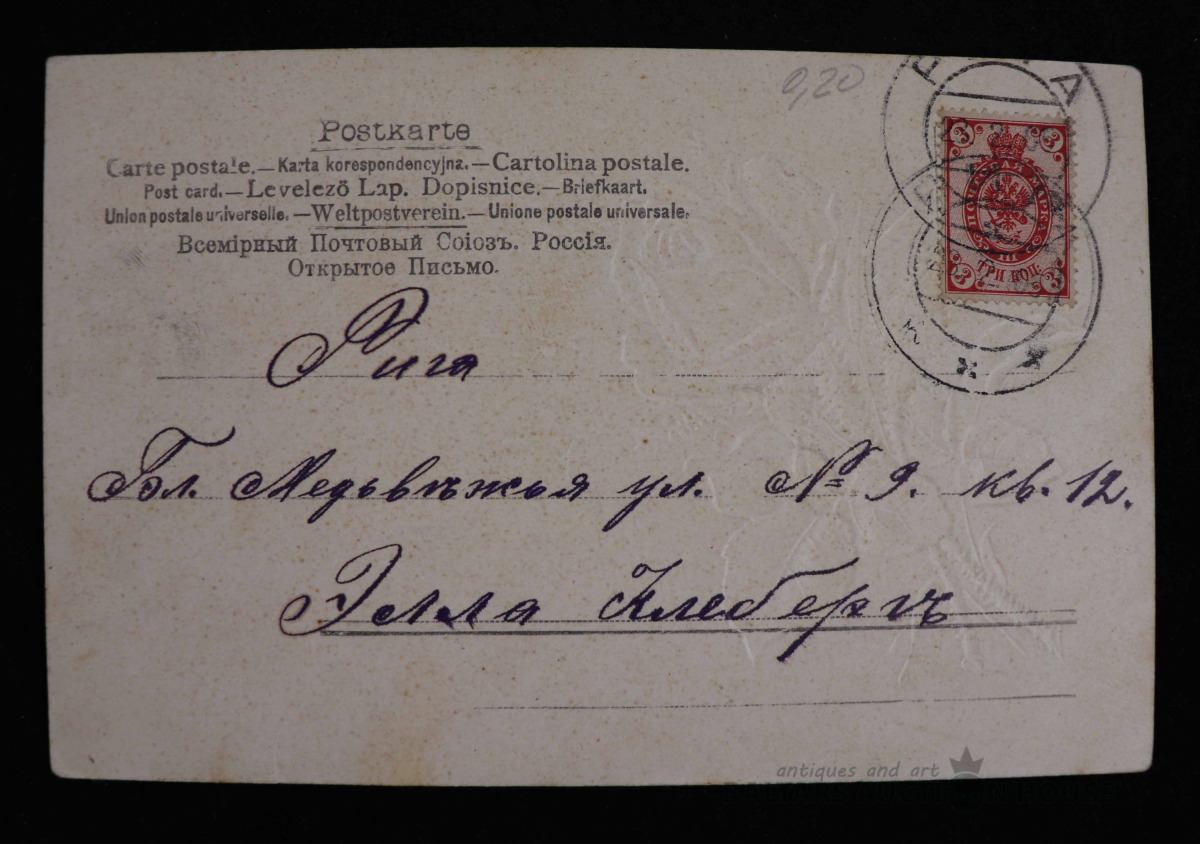 9,20
Postkarte
Carte postale. — Karta korespondencyjna. — Cartolina postale.
Post card. — Levelező Lap. Dopisnice. — Briefkaart.
Union postale universelle. — Weltpostverein. — Unione postale universale.
Всемірный Почтовый Союзъ. Россія.
Открытое Письмо.
3 3
ПОЧТОВАЯ МАРКА
ТРИ КОП.
3 3
Рига
Бл. Медьвѣжья ул. № 9. кв. 12.
Элла Клебергъ
antiques and art